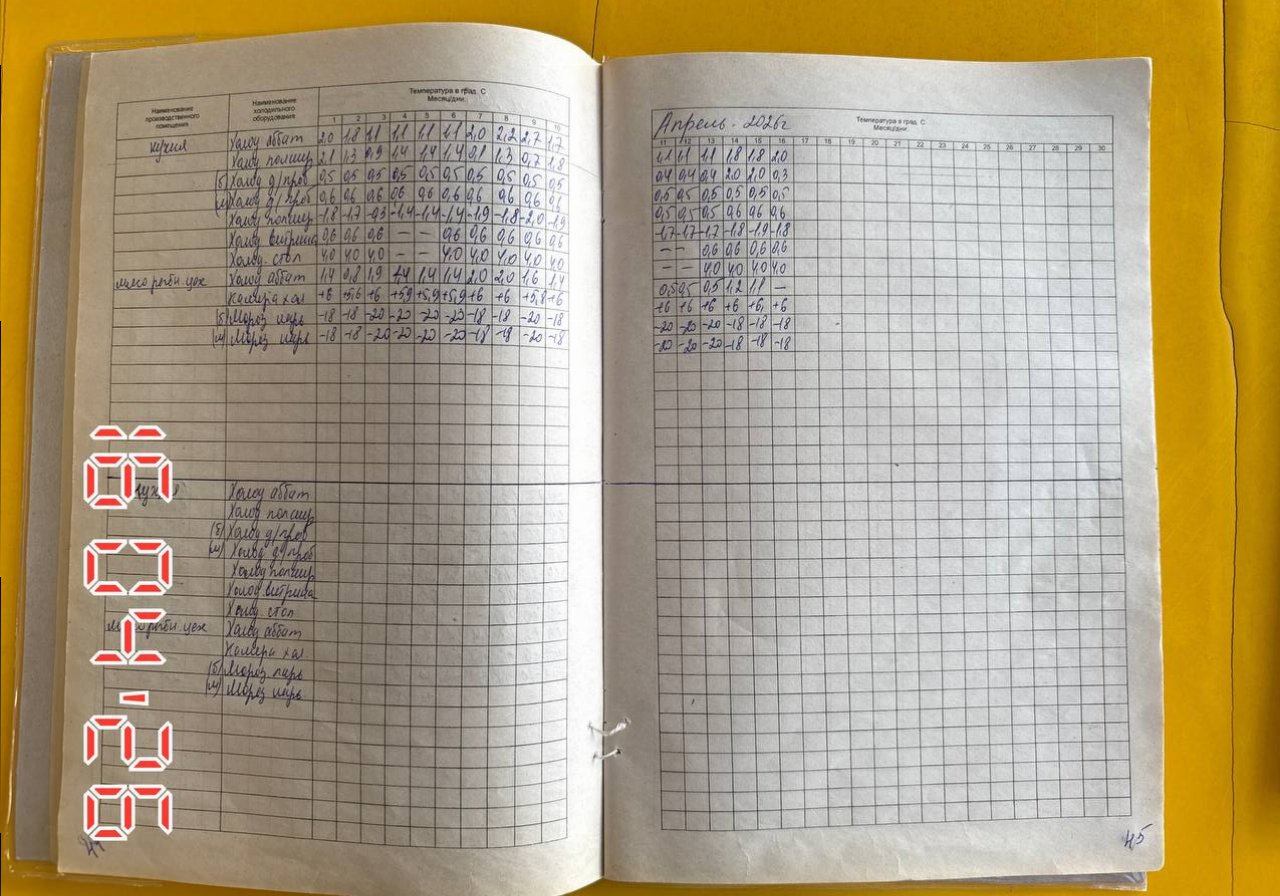 Наименование производственного помещения
Наименование холодильного оборудования
Температура в град. С
Месяц/дни
1 2 3 4 5 6 7 8 9 10
кухня Холод аббат 2,0 1,8 1,1 1,1 1,1 1,1 2,0 2,2 2,7 1,7
Холод полаир 2,1 1,3 0,9 1,4 1,4 1,4 0,7 1,8
(б) Холод д/проб 0,5 0,5 0,5 0,5 0,5 0,5 0,5 0,5 0,5 0,5
(м) Холод д/проб 0,6 0,6 0,6 0,6 0,6 0,6 0,6 0,6 0,6 0,6
Холод полаир -1,8 -1,7 -1,4 -1,4 -1,4 -1,9 -1,8 -2,0 -1,9
Холод витрина 0,6 0,6 0,6 – – 0,6 0,6 0,6 0,6 0,6
Холод. стол 4,0 4,0 4,0 – – 4,0 4,0 4,0 4,0 4,0
мясо рыбн. цех Холод аббат 1,4 0,8 1,9 1,4 1,4 1,4 2,0 2,0 1,6 1,4
Камера хол +6 +5,6 +6 +5,9 +5,9 +5,9 +6 +6 +5,8 +6
(б) Мороз ларь -18 -18 -20 -20 -20 -20 -18 -18 -20 -18
(м) Мороз ларь -18 -18 -20 -20 -20 -20 -18 -18 -20 -18
кухня Холод аббат
Холод полаир
(б) Холод д/проб
(м) Холод д/проб
Холод полаир
Холод витрина
Холод. стол
мясо рыбн. цех Холод аббат
Камера хол
(б) Мороз ларь
(м) Мороз ларь
Апрель - 2026г
Температура в град. С
Месяц/дни
11 12 13 14 15 16 17 18 19 20 21 22 23 24 25 26 27 28 29 30
1,1 1,1 1,1 1,8 1,8 2,0
0,4 0,4 0,4 2,0 2,0 0,3
0,5 0,5 0,5 0,5 0,5 0,5
0,5 0,5 0,5 0,6 0,6 0,6
-1,7 -1,7 -1,2 -1,8 -1,9 -1,8
– – 0,6 0,6 0,6 0,6
– – 4,0 4,0 4,0 4,0
0,5 0,5 0,5 1,2 1,1 –
+6 +6 +6 +6 +6 +6
-20 -20 -20 -18 -18 -18
-20 -20 -20 -18 -18 -18
45